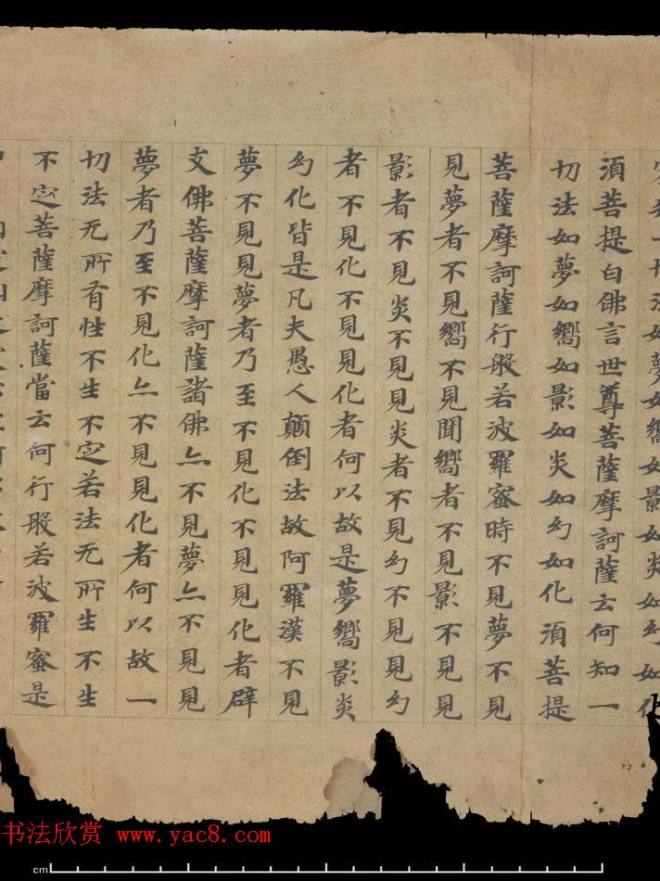 一切法如夢如嚮如影如炎如幻如化
湏菩提白佛言世尊菩薩摩訶薩云何知一
切法如夢如嚮如影如炎如幻如化湏菩提
菩薩摩訶薩行般若波羅蜜時不見夢不見
見夢者不見嚮不見聞嚮者不見影不見見
影者不見炎不見見炎者不見幻不見見幻
者不見化不見見化者何以故是夢嚮影炎
幻化皆是凡夫愚人顛倒法故阿羅漢不見
夢不見見夢者乃至不見化不見見化者辟
支佛菩薩摩訶薩諸佛亦不見夢亦不見見
夢者乃至不見化亦不見見化者何以故一
切法无所有性不生不定若法无所生不生
不定菩薩摩訶薩當云何行般若波羅蜜是
书法欣赏 www.yac8.com
cm